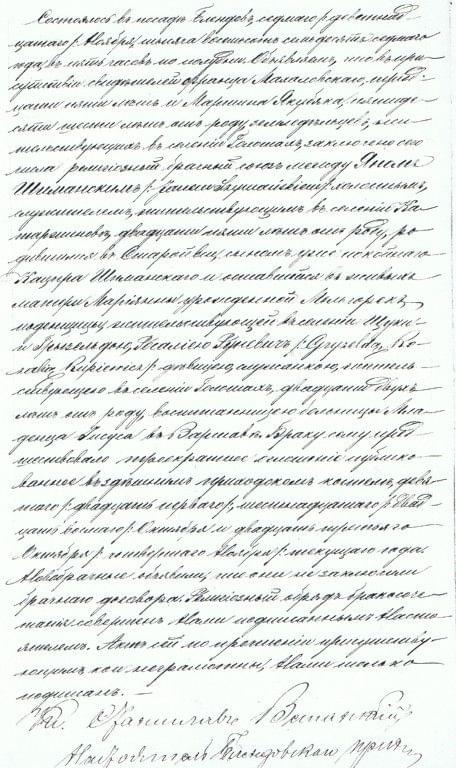 Состоялось въ посадѣ Блендовъ, седмаго /: девятнад-
цатаго :/ Ноября, тысяча восемьсотъ семьдесятъ седмаго
года, въ пять часовъ по полудни. Объявляемъ, что въ при-
сутствіи свидѣтелей Франца Малаловскаго, трид-
цати пяти лѣтъ и Мартина Якубяка, пятиде-
сяти шести лѣтъ отъ роду, земледѣльцевъ, жи-
тельствующихъ въ селеніи Голошахъ, заключенъ сего
числа религіозный брачный союзъ между Яномъ
Шиманскимъ /: Janem Szymańskim :/ холостымъ,
служителемъ, жительствующимъ въ селеніи Ка-
таржиновъ, двадцати пяти лѣтъ отъ роду, ро-
дившимся въ Старой вси, сыномъ уже покойнаго
Каспра Шиманскаго и оставшейся въ живыхъ
матери Маріянны урожденной
поденщицы жительствующей въ селеніи Щуки
и Гризельдою, Розаліею Руневичъ /: Gryzeldą, Ro-
zalią :/ дѣвицею, служанкою, житель-
ствующею въ селеніи Голошахъ, двадцати двухъ
лѣтъ отъ роду, воспитанницею больницы Мла-
денца Іисуса въ Варшавѣ. Браку сему пред-
шествовало троекратное оглашеніе публико-
ванное въ здѣшнемъ приходскомъ костелѣ, девя-
таго /: двадцать перваго :/, шестнадцатаго /: двад-
цать восьмаго :/ Октября и двадцать третьяго
Октября /: четвертаго Ноября :/ текущаго года.
Новобрачные объявили, что они не заключили
брачнаго договора. Религіозный обрядъ бракосоче-
танія совершенъ Нами подписаннымъ Насто-
ятелемъ. Актъ сей по прочтеніи присутству-
ющимъ, кои неграмотны, Нами только
подписанъ. —
Кс. Станиславъ
Настоятель Блендовскаго прих.